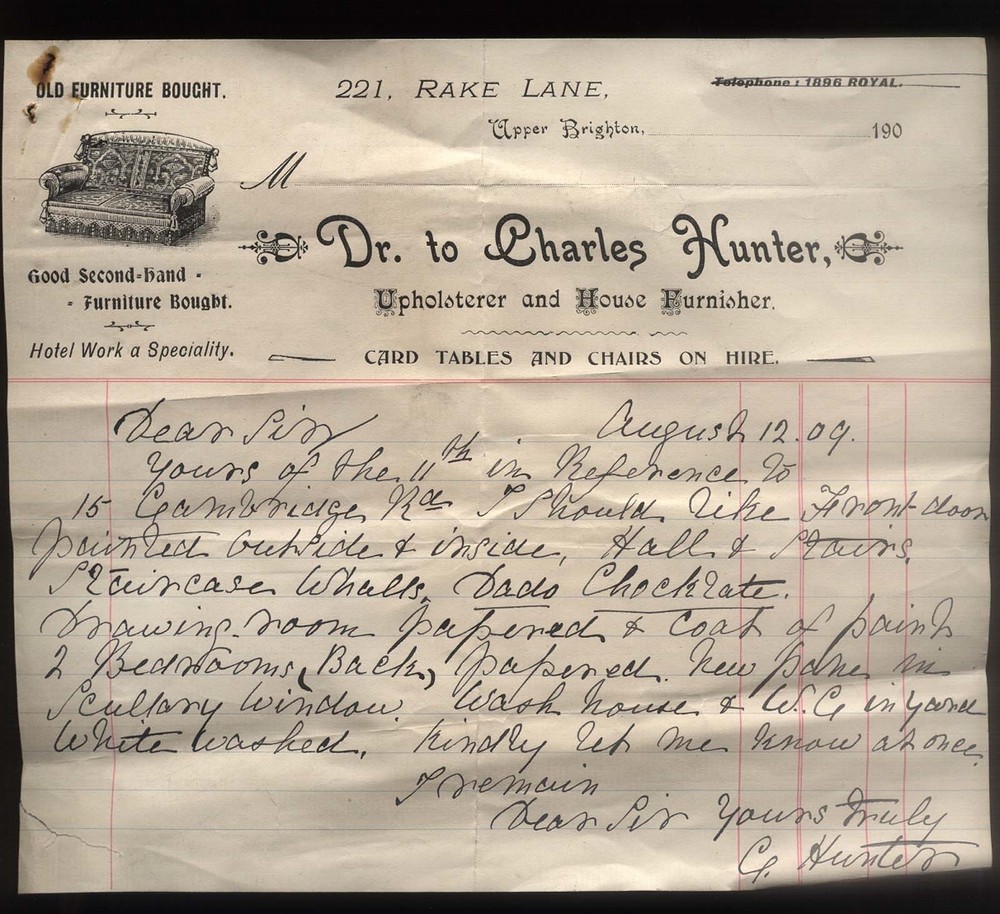 OLD FURNITURE BOUGHT.
221, RAKE LANE,
Telephone: 1896 ROYAL.
Upper Brighton, 190
M
Dr. to Charles Hunter,
Good Second-hand -
- Furniture Bought.
Upholsterer and House Furnisher.
Hotel Work a Speciality.
CARD TABLES AND CHAIRS ON HIRE.
Dear Sir August 12.09.
Yours of the 11th in Reference to
15 Cambridge Rd I Should like Front door
painted outside & inside, Hall & Stairs,
Staircase Whalls, Dado Chocklate.
Drawing-room papered & coat of paint
2 Bedrooms, (Back,) papered. New pane in
Scullary Window. Wash house & W.C in yard
White washed. Kindly let me know at once.
I remain
Dear Sir Yours Truly
C. Hunter